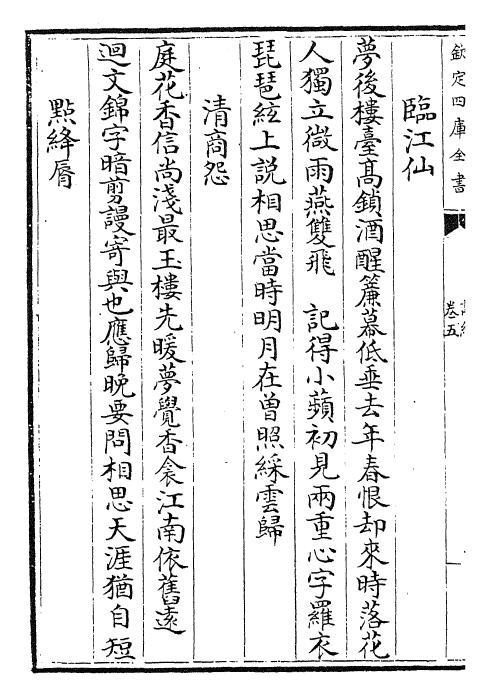 欽定四庫全書
卷五
臨江仙
夢後樓臺髙鎖酒醒簾幕低垂去年春恨却來時落花
人獨立微雨燕雙飛　記得小蘋初見兩重心字羅衣
琵琶絃上說相思當時明月在曽照綵雲歸
清商怨
庭花香信尚淺最玉樓先暖夢覺香衾江南依舊遠
迴文錦字暗剪謾寄與也應歸晩要問相思天涯猶自短
點絳脣